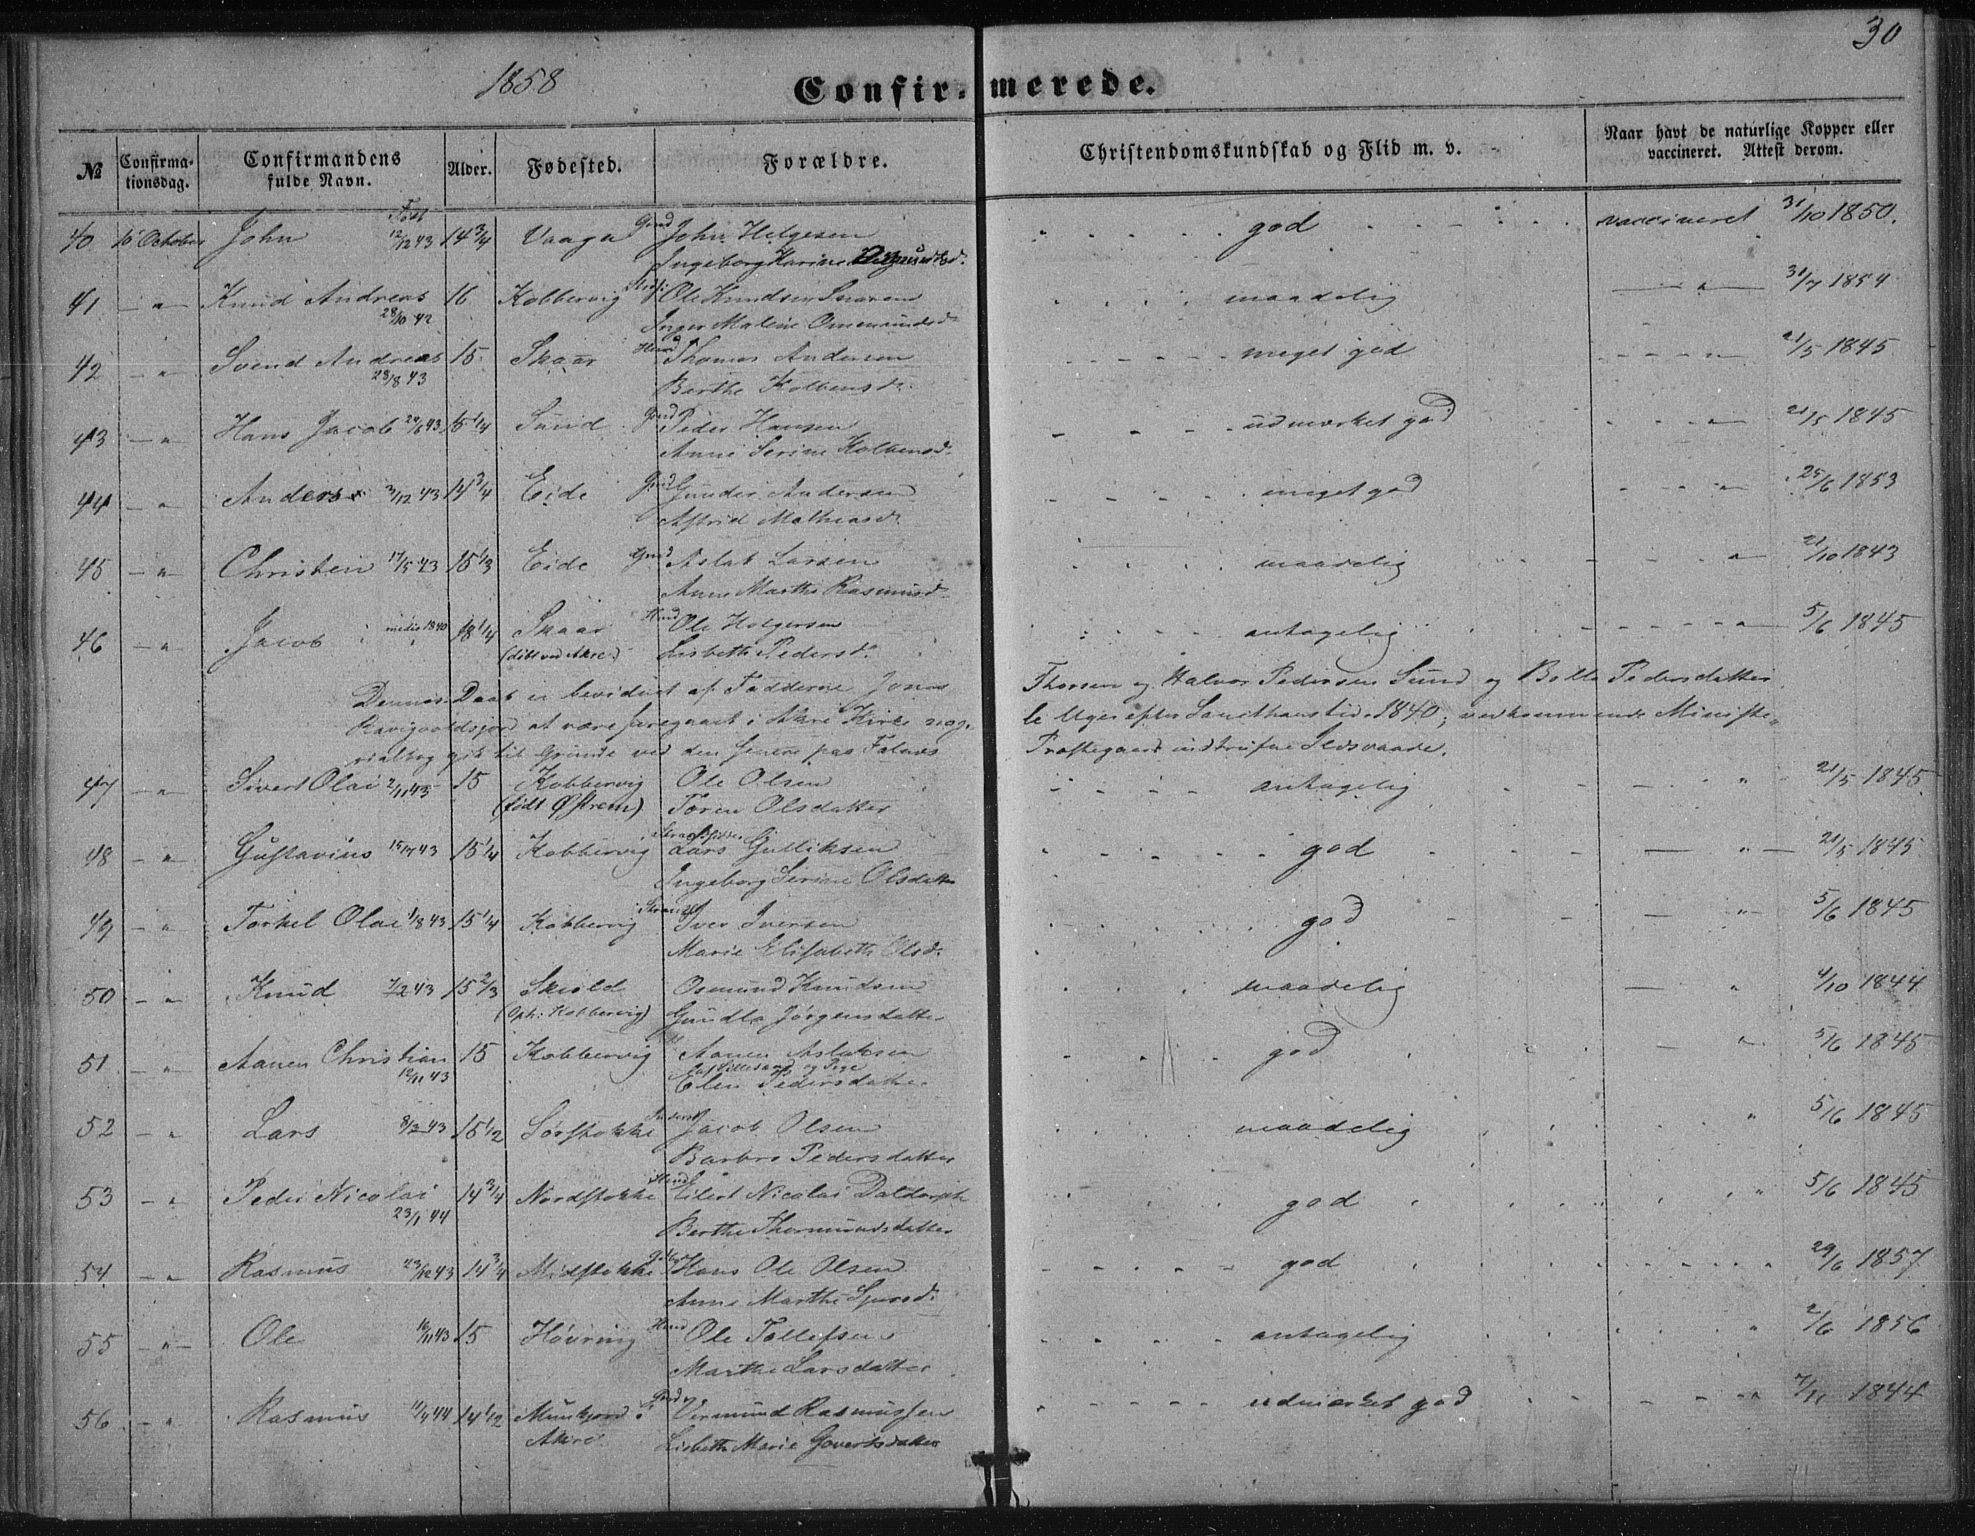 30
1858
Confirmerede.
№ Confirmationsdag. Confirmandens fulde Navn. Alder. Fødested. Forældre. Christendomskundskab og Flid m. v. Naar havt de naturlige Kopper eller vaccineret. Attest derom.
40 10 October John Født 12/12 43 14 3/4 Vaaga Gmd John Helgesen god vaccineret 31/10 1850.
Ingeborg Karine
41 - " - Knud Andreas 16 Kobbervig Ole Knudsen Snaren maadelig - " - 31/7 1854
28/10 42 Inger Malene Omemundsd.
42 - " Svend Andreas 15 Skaar Huusmd Thomas Andersen meget god " 21/5 1845
28/8 43 Berthe Kolbensd.
43 - " Hans Jacob 24/6 43 15 1/4 Sund Gmd Peder Hansen udmærket god " 21/5 1845
Anne Serine Kolbensd.
44 - " Anders 3/12 43 14 3/4 Eide Gmd Gunder Andersen meget god " 25/6 1853
Astrid Mathiasd.
45 - " - Christen 17/5 43 15 1/3 Eide Gmd Aslak Larsen maadelig " 21/10 1843
Anne Marthe Rasmusd.
46 - " Jacob medio 1840 18 1/4 Skaar Hmd Ole Holgersen antagelig " 5/6 1845
(døbt ved Akre) Lisbeth Pedersd.
Dennes Daab er bevidnet af Fadderne Jonas Thorsen og Halvor Pedersen Sund og Bolle Pedersdatter
at være foregaaet i Akre Kirke Uger efter Sancthanstid 1840; vedkommende Ministe-
rialbog gik til Grunde ved den senere paa Falnes Præstegaard indtrufne Ildsvaade.
47 - " Sivert Olai 2/11 43 15 Kobbervig Ole Olsen antagelig " 21/5 1845
(født Østrem) Toren Olsdatter
48 - " Gustavius 15/7 43 15 1/4 Kobbervig Lars Gulliksen god - " - 21/5 1845
Ingeborg Serine Olsdatter
49 - " Torkel Olai 1/8 43 15 1/4 Kobbervig Iver Iversen god - " 5/6 1845
Marie Elisabeth Olsd.
50 - " Knud 7/2 43 15 2/3 Skeold Osmund Knudsen maadelig - " 4/10 1844
(Oph: Kobbervig) Gundla Jørgensdatter
51 - " Aanen Christian 15 Kobbervig Aanen Aslaksen god - " 5/6 1845
12/11 43 og Pige
Elen Pedersdatter
52 - " Lars 8/2 43 15 1/2 Sørstokke Jacob Olsen maadelig " 5/6 1845
Barbro Pedersdatter
53 - " Peder Nicolai 14 3/4 Nordstokke Eilert Nicolai Daldorph god " 5/6 1845
23/1 44 Berthe Thormundsdatter
54 - " Rasmus 23/12 43 14 3/4 Midstokke Hans Ole Olsen god " 29/6 1857
Anne Marthe
55 - " - Ole 16/11 43 15 Høvring Hmd Ole Tollefsen antagelig " 2/6 1856
Marthe Larsdatter
56 - " Rasmus 11/4 44 14 1/2 Munkjord i Gmd Vermund Rasmussen udmærket god " 7/11 1844
Akre Lisbeth Marie Govertsdatter